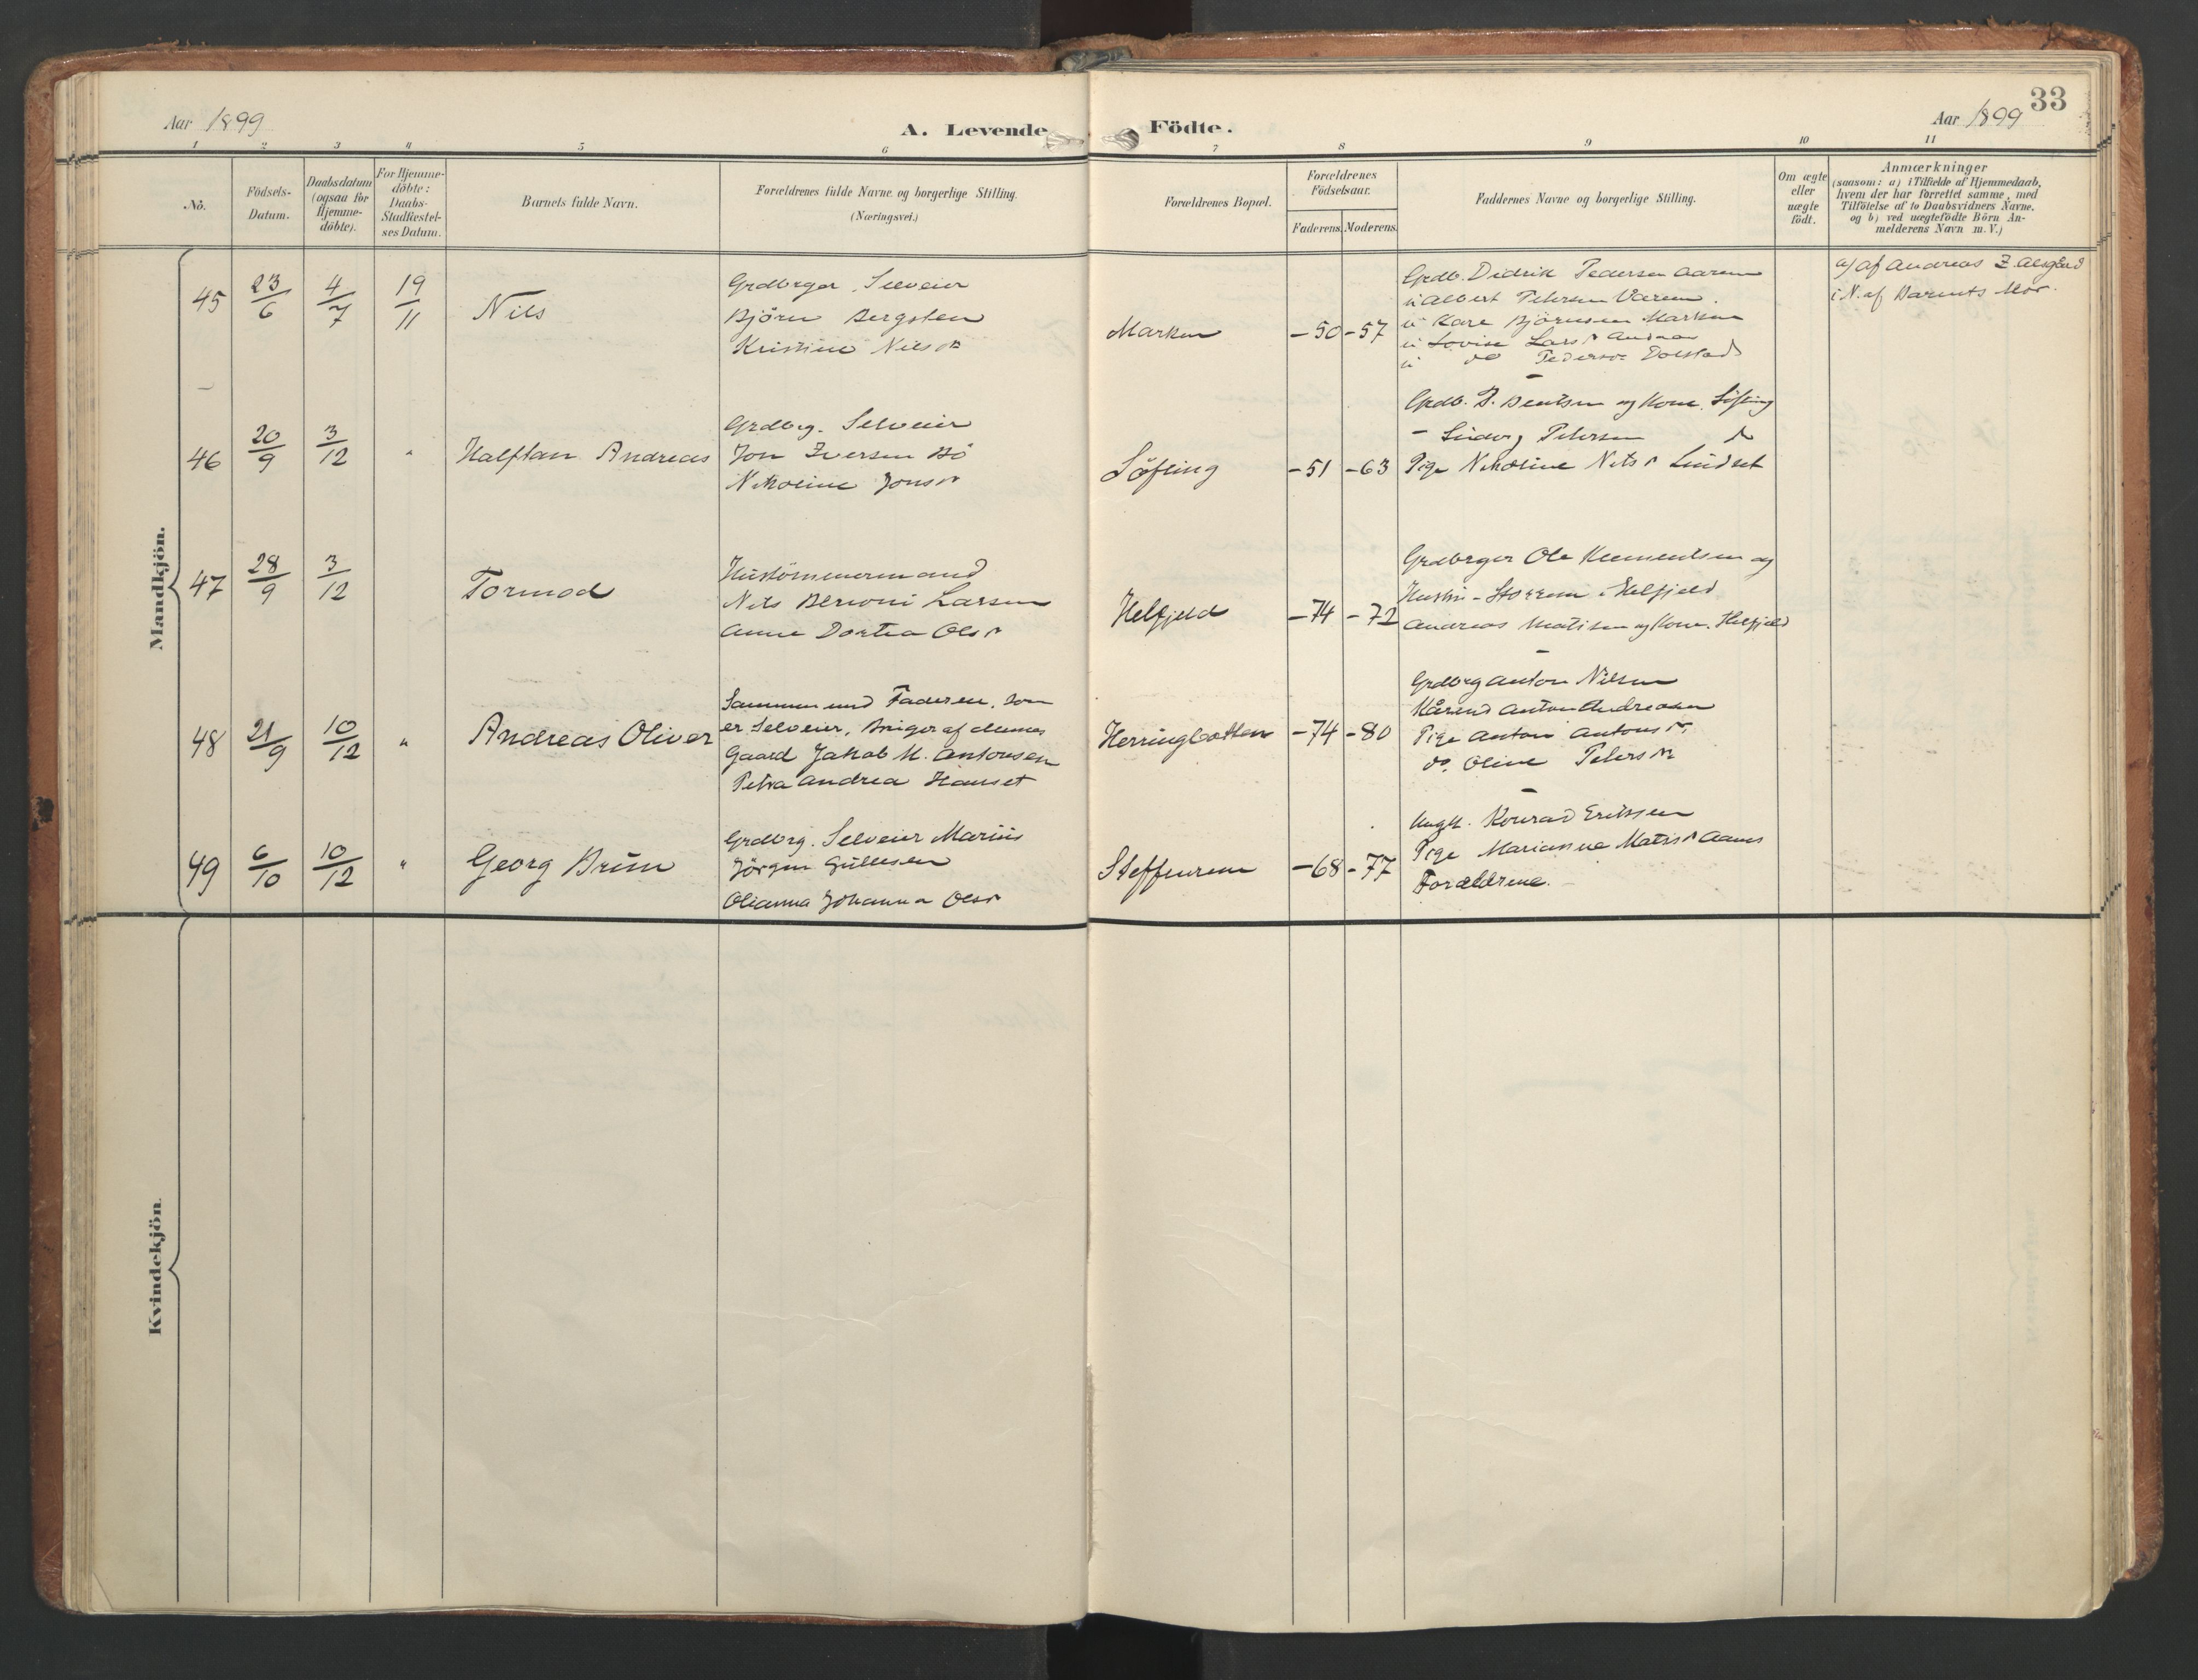 33
Aar 1899
A. Levende Födte.
Aar 1899
1 2 3 4 5 6 7 8 9 10 11
No.
Födsels-
Datum.
Daabsdatum
(ogsaa for
Hjemme-
döbte).
For Hjemme-
döbte:
Daabs-
Stadfæstel-
ses Datum.
Barnets fulde Navn.
Forældrenes fulde Navne og borgerlige Stilling.
(Næringsvei.)
Forældrenes Bopæl.
Forældrenes
Födselsaar.
Faderens. Moderens.
Faddernes Navne og borgerlige Stilling.
Om ægte
eller
uægte
födt.
Anmærkninger
(saasom: a) i Tilfælde af Hjemmedaab,
hvem der har forrettet samme, med
Tilföielse af to Daabsvidners Navne.
og b) ved uægtefödte Börn An-
melderens Navn m. V.)
Mandkjön.
45 23/6 4/7 19/11 Nils
Grdbrger. Selveier
Björn Bergsten
Kristine Nilsdr
Marken -50 -57
Grdb. Didrik Pedersen
Albert Petersen
Kare Björnsen Marken
Lovise Larsdr
do Pedersdr Dolstad
a) af Andreas Z. Alsgård
i N. af Barnets Mor.
46 20/9 3/12 " Halftan Andreas
Grdbrg. Selveier
Jon Iversen Bö
Nikoline Jonsdr
Söfting -51 -63
Grdb. P. Bentsen og Kone. Söfting
- Ludvig Petersen
Pige Nikoline Nilsdr Lindset
47 28/9 3/12 Tormod
Hustömmermand
Nils Bernoni Larsen
Anne Dortea Olsdr
Helfjeld -74 -72
Grdbrger Ole Klementsen og
Hustru i Helfjeld
Andreas Matisen og Kone. Helfjeld
48 21/9 10/12 " Andreas Oliver
Sammen med Faderen, som
er Selveier, Bruger af denne
Gaard Jakob M. Antonsen
Petra Andrea Hanset
Herringbotten -74 -80
Grdbrg Anton Nilsen
Anton Andreasen
Pige Antoni Antonsdr,
do. Oline Petersdr
49 6/10 10/12 " Georg Brun
Grdbrg. Selveier Marius
Jörgen Gullesen
Olianna Johanna Olsdr
Steffenrem -68 -77
Ungk. Konrad Eriksen
Pige Marianne Matisdr Aanes
Forældrene.
Kvindekjön